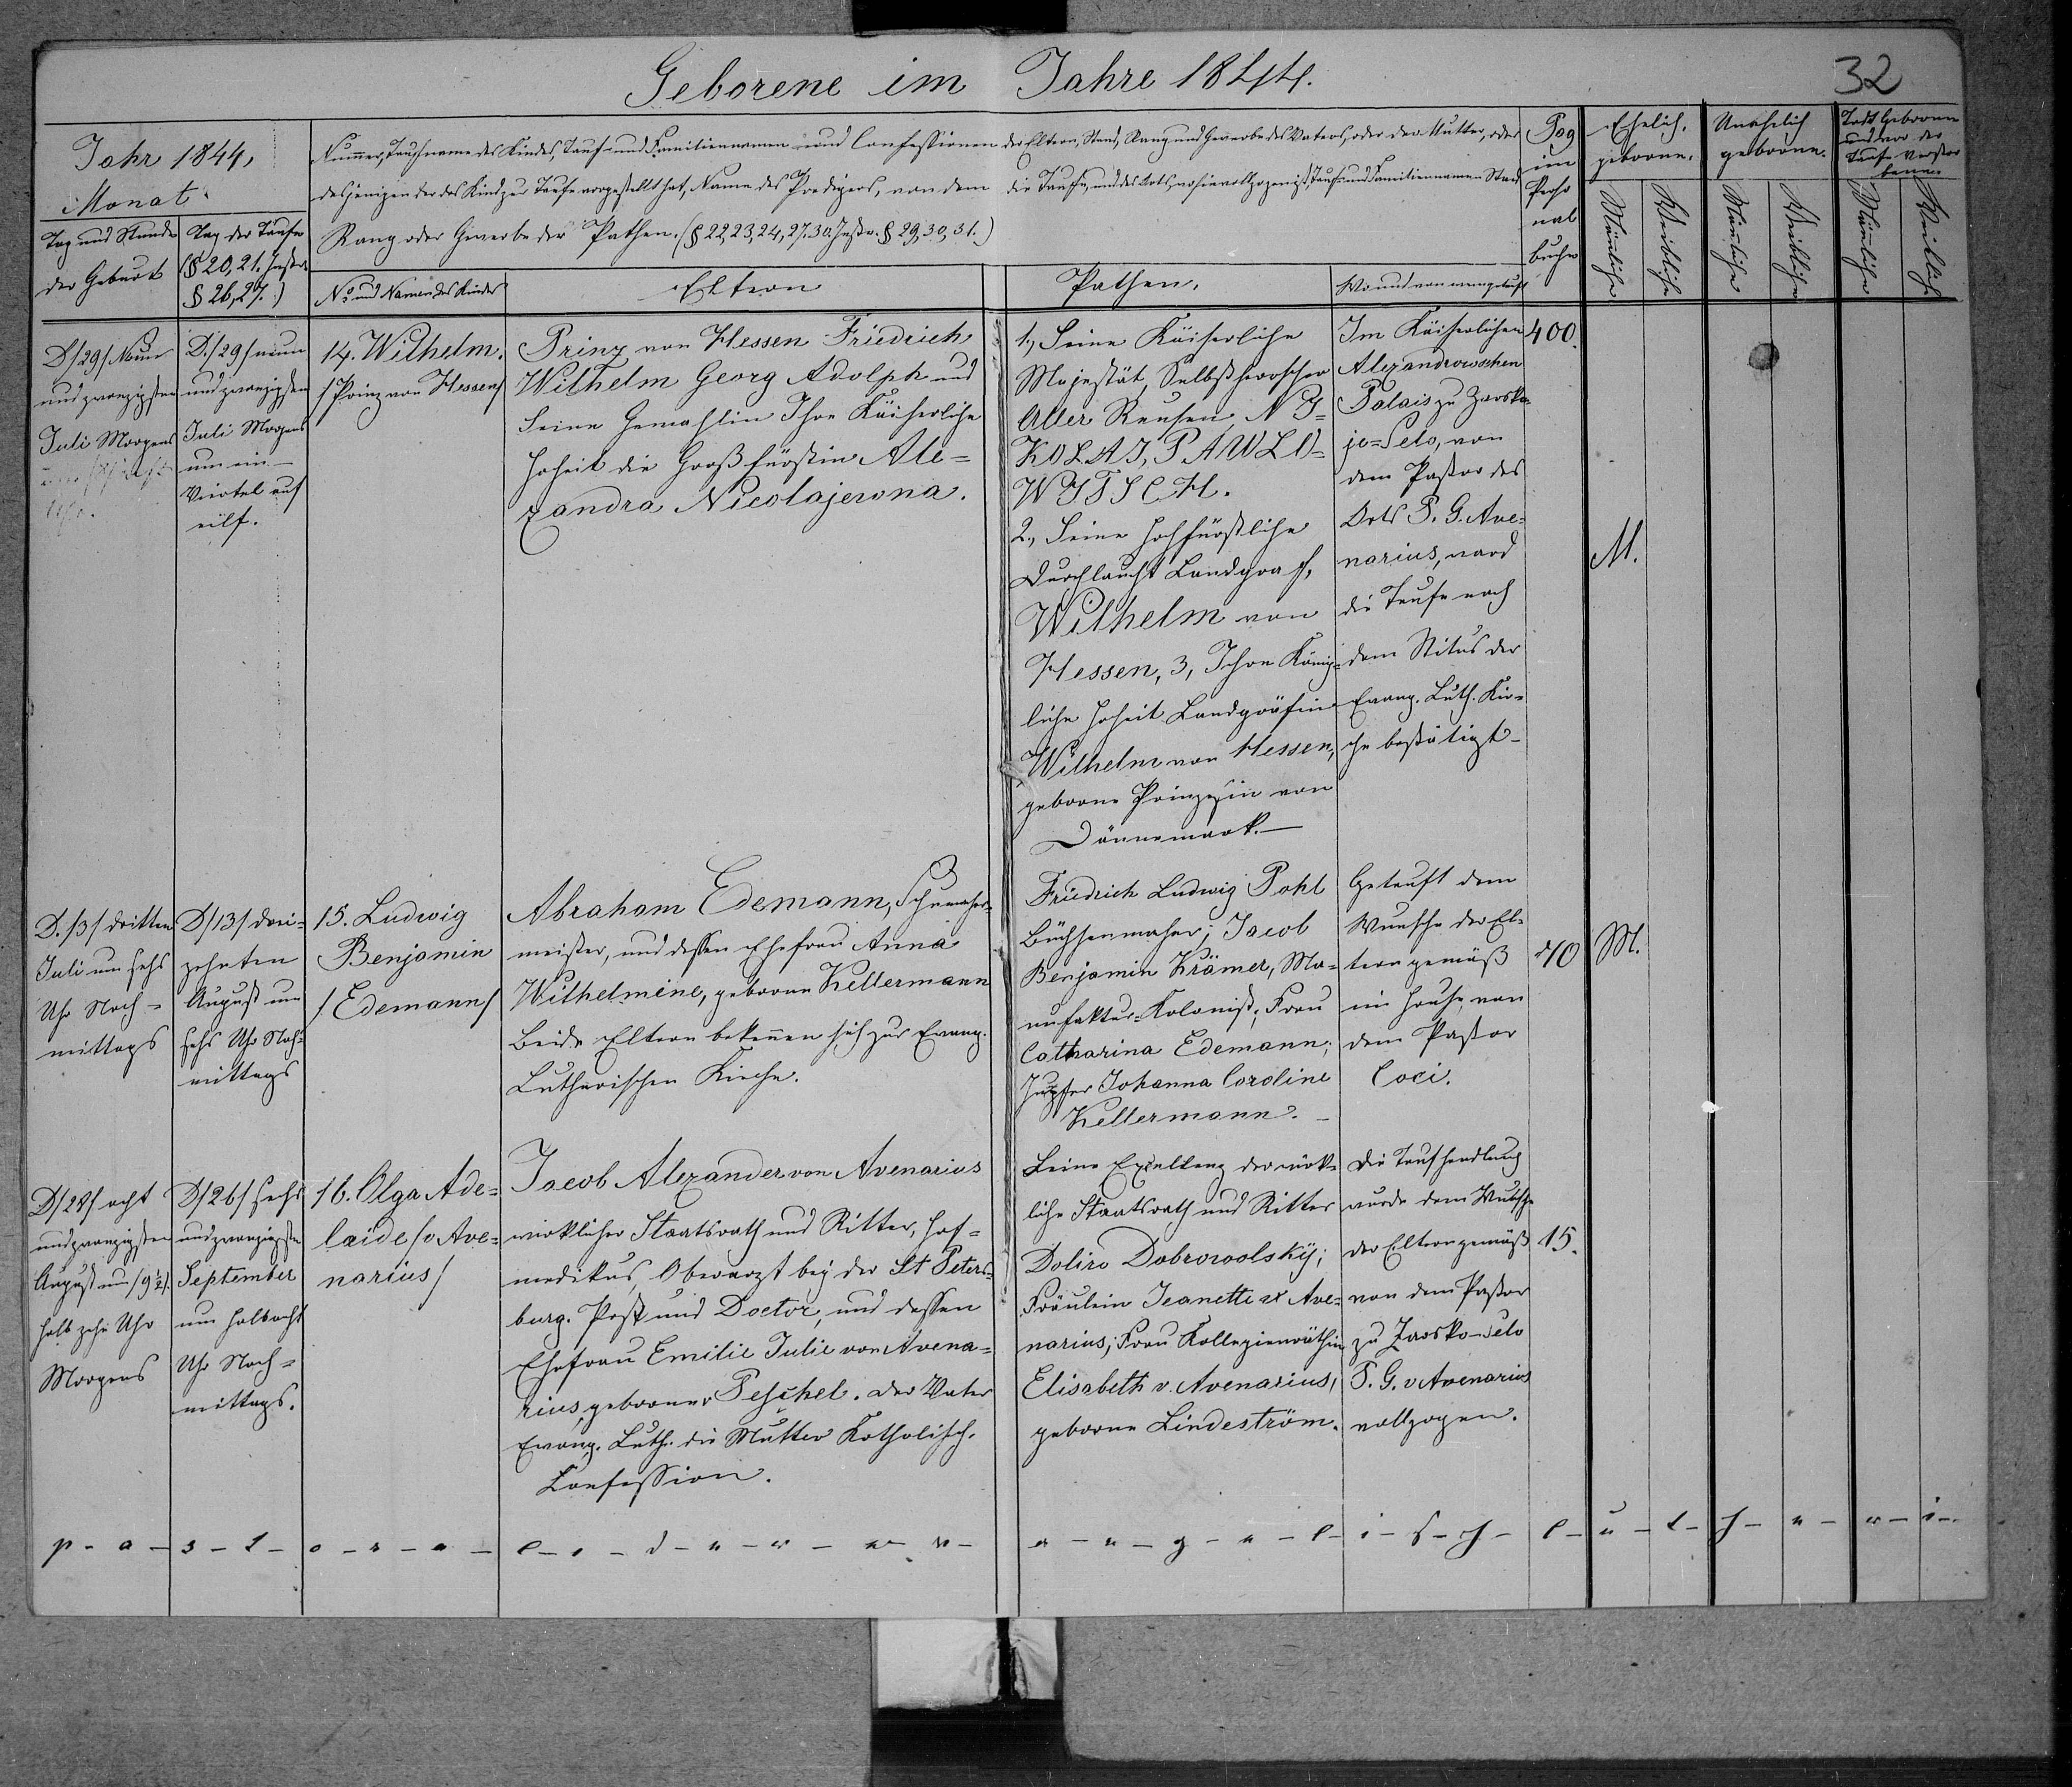 Geborene im Jahre 1844.
32
Jahr 1844,
Monat.
Tag und Stunde
der Geburt
Tag der Taufe
(§ 20, 21. Instr.
§ 26, 27.)
Nummer, Taufname des Kindes, Tauf- und Familiennamen und Confessionen der Eltern, Stand, Rang und Gewerbe des Vaters, oder der Mutter, oder
desjenigen der das Kind zur Taufe vorgestellt hat, Name des Predigers, von dem die Taufe, und des Orts, wo sie vollzogen ist, Tauf- und Familiennamen Stand
Rang oder Gewerbe der Pathen. (§ 22, 23, 24, 27. 30. Instr. § 29, 30, 31.)
No und Namen des Kindes
Eltern
Pathen.
Wo und von wem getauft
Pag
im
Perso
nal
buche
Ehelich
geborene.
Unehelich
geborene.
Todt Geborene
und vor der
Taufe verstor
benen
Männliche
Weibliche
Männliche
Weibliche
Männliche
Weibliche
D/29/ Neun
und zwanzigsten
Juli Morgens
Uhr.
D./29/ neun
und zwanzigsten
Juli Morgens
um ein
Viertel auf
eilf.
14. Wilhelm.
/Prinz von Hessen/
Prinz von Hessen Friedrich
Wilhelm Georg Adolph und
Seine Gemahlin Ihre Käiserliche
Hoheit die Großfürstin Ale=
xandra Nicolajewna.
1, Seine Käiserliche
Majestät, Selbstherrscher
Aller Reusen, NI=
KOLAI, PAWLO=
WITSCH.
2, Seine Hochfürstliche
Durchlaucht Landgraf,
Wilhelm von
Hessen, 3, Ihre König=
liche Hoheit Landgräfin
Wilhelm von Hessen,
geborne Prinzessin von
Dännemark.
Im Käiserlichen
Alexandrowschen
Palais zu Zarsko=
je=Selo, von
dem Pastor des
Orts P. G. Ave=
narius, ward
die Taufe nach
dem Ritus der
Evang. Luth. Kir=
che bestätigt
400.
M.
D./3/ dritten
Juli um sechs
Uhr Nach=
mittags
D/13/ drei=
zehnten
August um
sechs Uhr Nach=
mittags
15. Ludwig
Benjamin
/Edemann/
Abraham Edemann, Schumacher=
meister, und dessen Ehefrau Anna
Wilhelmine, geborne Kellermann
Beide Eltern bekennen sich zur Evang.
Lutherischen Kirche.
Friedrich Ludwig Pohl
Büchsenmacher; Jacob
Benjamin Krämer, Ma=
nufaktur=Kolonist; Frau
Catharina Edemann;
Jungfer Johanna Caroline
Kellermann.
Getauft dem
Wunsche der El=
tern gemäß
im Hause, von
dem Pastor
Loci.
40
M.
D/28/ acht
und zwanzigsten
August um /9½/.
halb zehn Uhr
Morgens
D/26/ sechs
und zwanzigsten
September
um halb acht
Uhr Nach=
mittags.
16. Olga Ade=
laide /v Ave=
narius/
Jacob Alexander von Avenarius
wirklicher Staatsrath und Ritter, Hof=
medikus, Oberarzt bey der St Peters=
burg. Post und Doctor, und dessen
Ehefrau Emilie Julie von Avena=
rius, geborner Peschel. der Vater
Evang. Luth. die Mutter Katholisch.
Confession.
Seine Excellenz der wirk=
liche Staatsrath und Ritter
Doliwo Dobrowolsky;
Fräulein Jeanette v Ave=
narius; Frau Kollegienräthin
Elisabeth v. Avenarius,
geborne Lindeström.
Die Taufhandlung
wurde dem Wunsche
der Eltern gemäß
von dem Pastor
zu Zarsko-Selo
P. G. v Avenarius
vollzogen.
15.
p - a - s - t - o - r - a - l - e - d - e - r - e - v - a - n - g - e - l - i - s - ch - l - u - t - h - e - r - i -